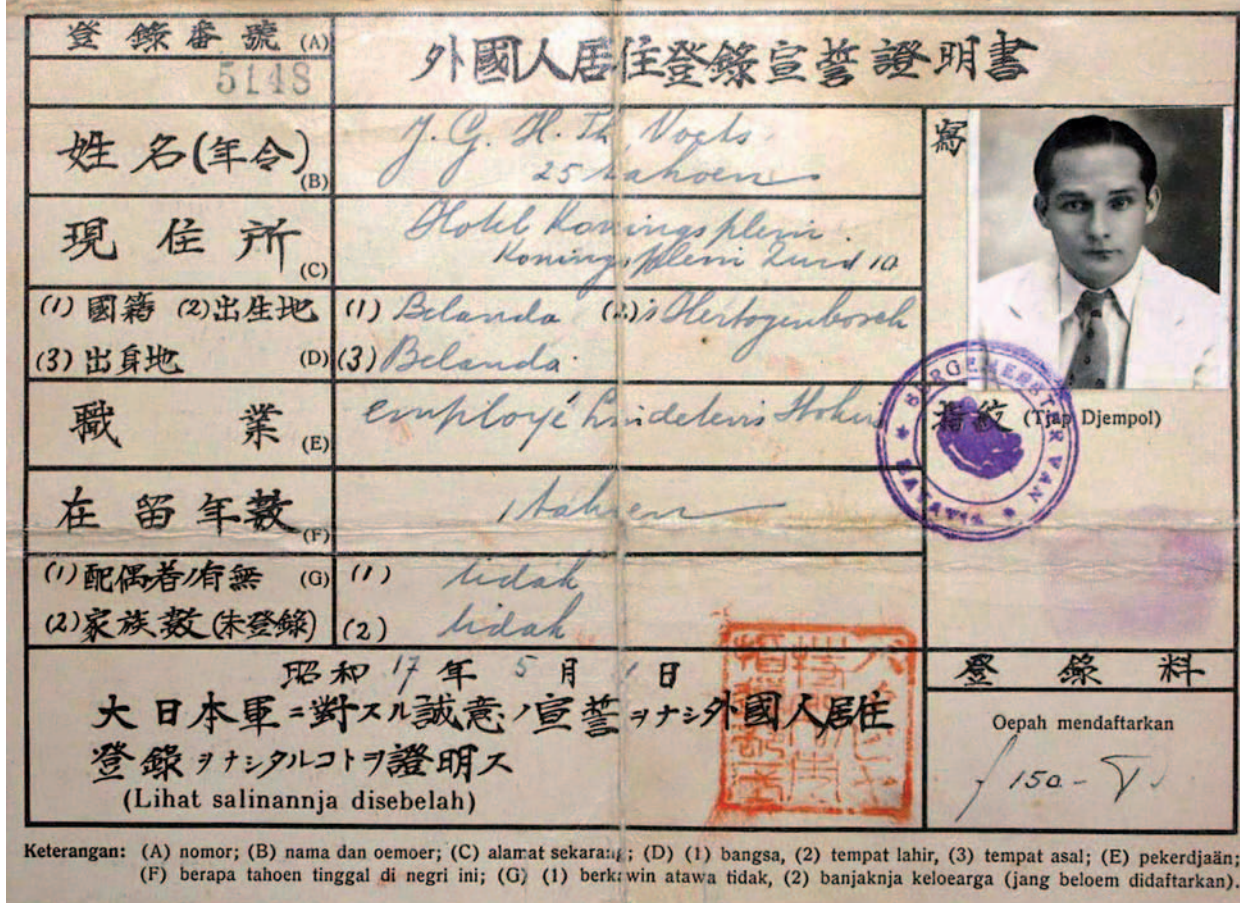 登錄番號 (A)
5148
外國人居住登錄宣誓證明書
姓名(年令) (B)
J. G. H. Th. Voets
25 tahoen
寫
現住所 (C)
Hotel Koningsplein.
Koningsplein Zuid 10
(1) 國籍 (2) 出生地
(1) Belanda (2) 's Hertogenbosch
(3) 出身地 (D)
(3) Belanda.
職業 (E)
employé Hotel
BURGEMEESTER VAN BATAVIA
指紋 (Tjap Djempol)
在留年数 (F)
1 tahoen
(1) 配偶者ノ有無 (G)
(1) tidak
(2) 家族数 (未登錄)
(2) tidak
昭和 17 年 5 月 1 日
大日本軍ニ對スル誠意ノ宣誓ヲナシ外國人居住
登錄ヲナシタルコトヲ證明ス
(Lihat salinannja disebelah)
登錄料
Oepah mendaftarkan
f 150.-
Keterangan: (A) nomor; (B) nama dan oemoer; (C) alamat sekarang; (D) (1) bangsa, (2) tempat lahir, (3) tempat asal; (E) pekerdjaän;
(F) berapa tahoen tinggal di negri ini; (G) (1) berkawin atawa tidak, (2) banjaknja keloearga (jang beloem didaftarkan).